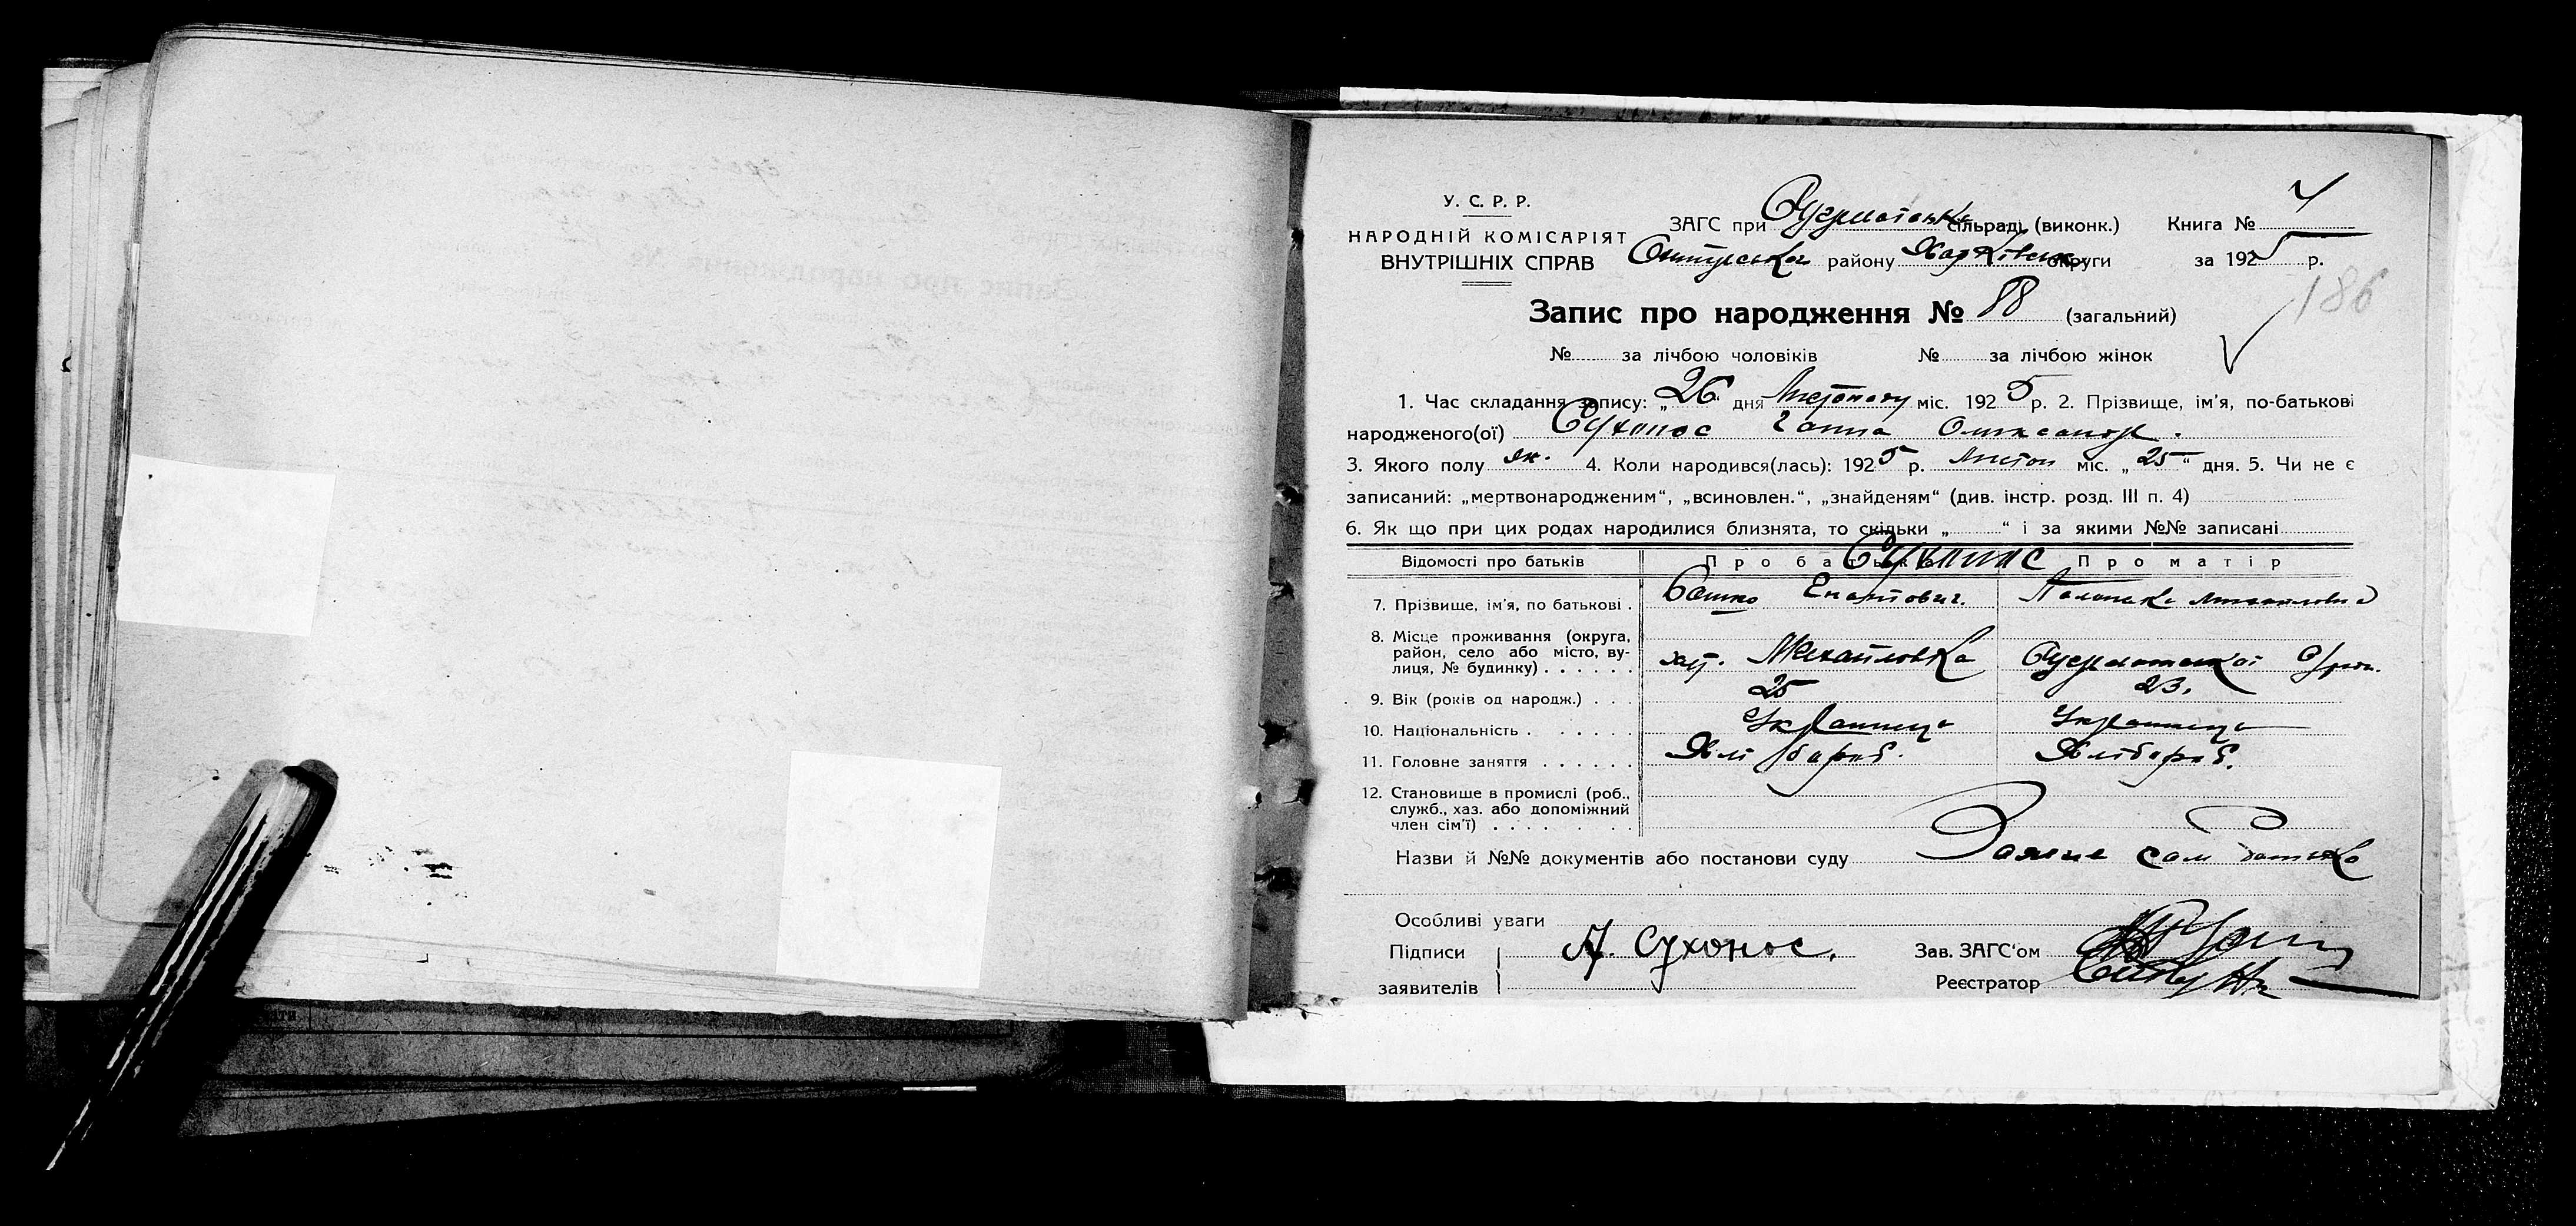 У. С. Р. Р.
НАРОДНІЙ КОМІСАРІЯТ
ВНУТРІШНІХ СПРАВ
ЗАГС при сільраді (виконк.)
району Харківськ округи
Книга №
за 1925 р.
186
Запис про народження № 88 (загальний)
№ за лічбою чоловіків № за лічбою жінок
1. Час складання запису: „26“ дня Листопаду міс. 1925 р. 2. Прізвище, ім'я, по-батькові
народженого(ої) Сухонос Ганна Олександр.
3. Якого полу жін. 4. Коли народився(лась): 1925 р. Листоп міс. „25“ дня. 5. Чи не є
записаний: „мертвонародженим“, „всиновлен.“, „знайденям“ (див. інстр. розд. III п. 4)
6. Як що при цих родах народилися близнята, то скільки „ “ і за якими №№ записані
Відомості про батьків Про батька Про матір
Сухонос
7. Прізвище, ім'я, по батькові .
8. Місце проживання (округа,
район, село або місто, ву-
лиця, № будинку) . . . . . . хут. Михайловка
9. Вік (років од народж.) . . . 25 23.
10. Національність . . . . . . Українець Українець
11. Головне заняття . . . . . . Хлібороб. Хлібороб.
12. Становище в промислі (роб.,
служб., хаз. або допоміжний
член сім'ї) . . . . . . . .
Назви й №№ документів або постанови суду Заявив сам батько
Особливі уваги
Підписи А. Сухонос. Зав. ЗАГС'ом
заявителів Реєстратор
яти